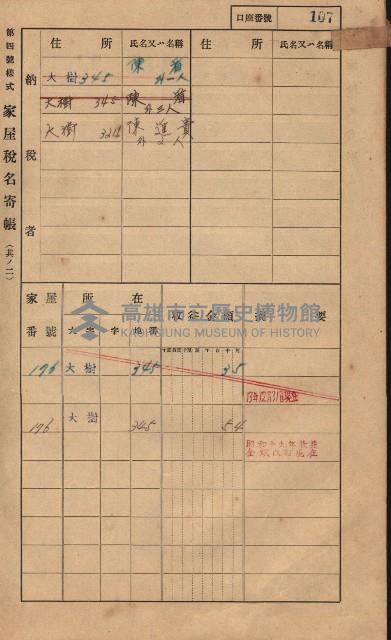 口座番號 107
第四號樣式 家屋稅名寄帳（其ノ二）
納稅者
住所 氏名又ハ名稱 住所 氏名又ハ名稱
大樹 345 陳 外一人
大樹 345 陳 外三人
大樹 陳進貴 外2人
家屋番號 所在 賃貸金額 摘要
大字 字 地番
196 大樹 345 35
13年12月31日現在
196 大樹 345 54
昭和十九年
高雄市立歷史博物館
KAOHSIUNG MUSEUM OF HISTORY